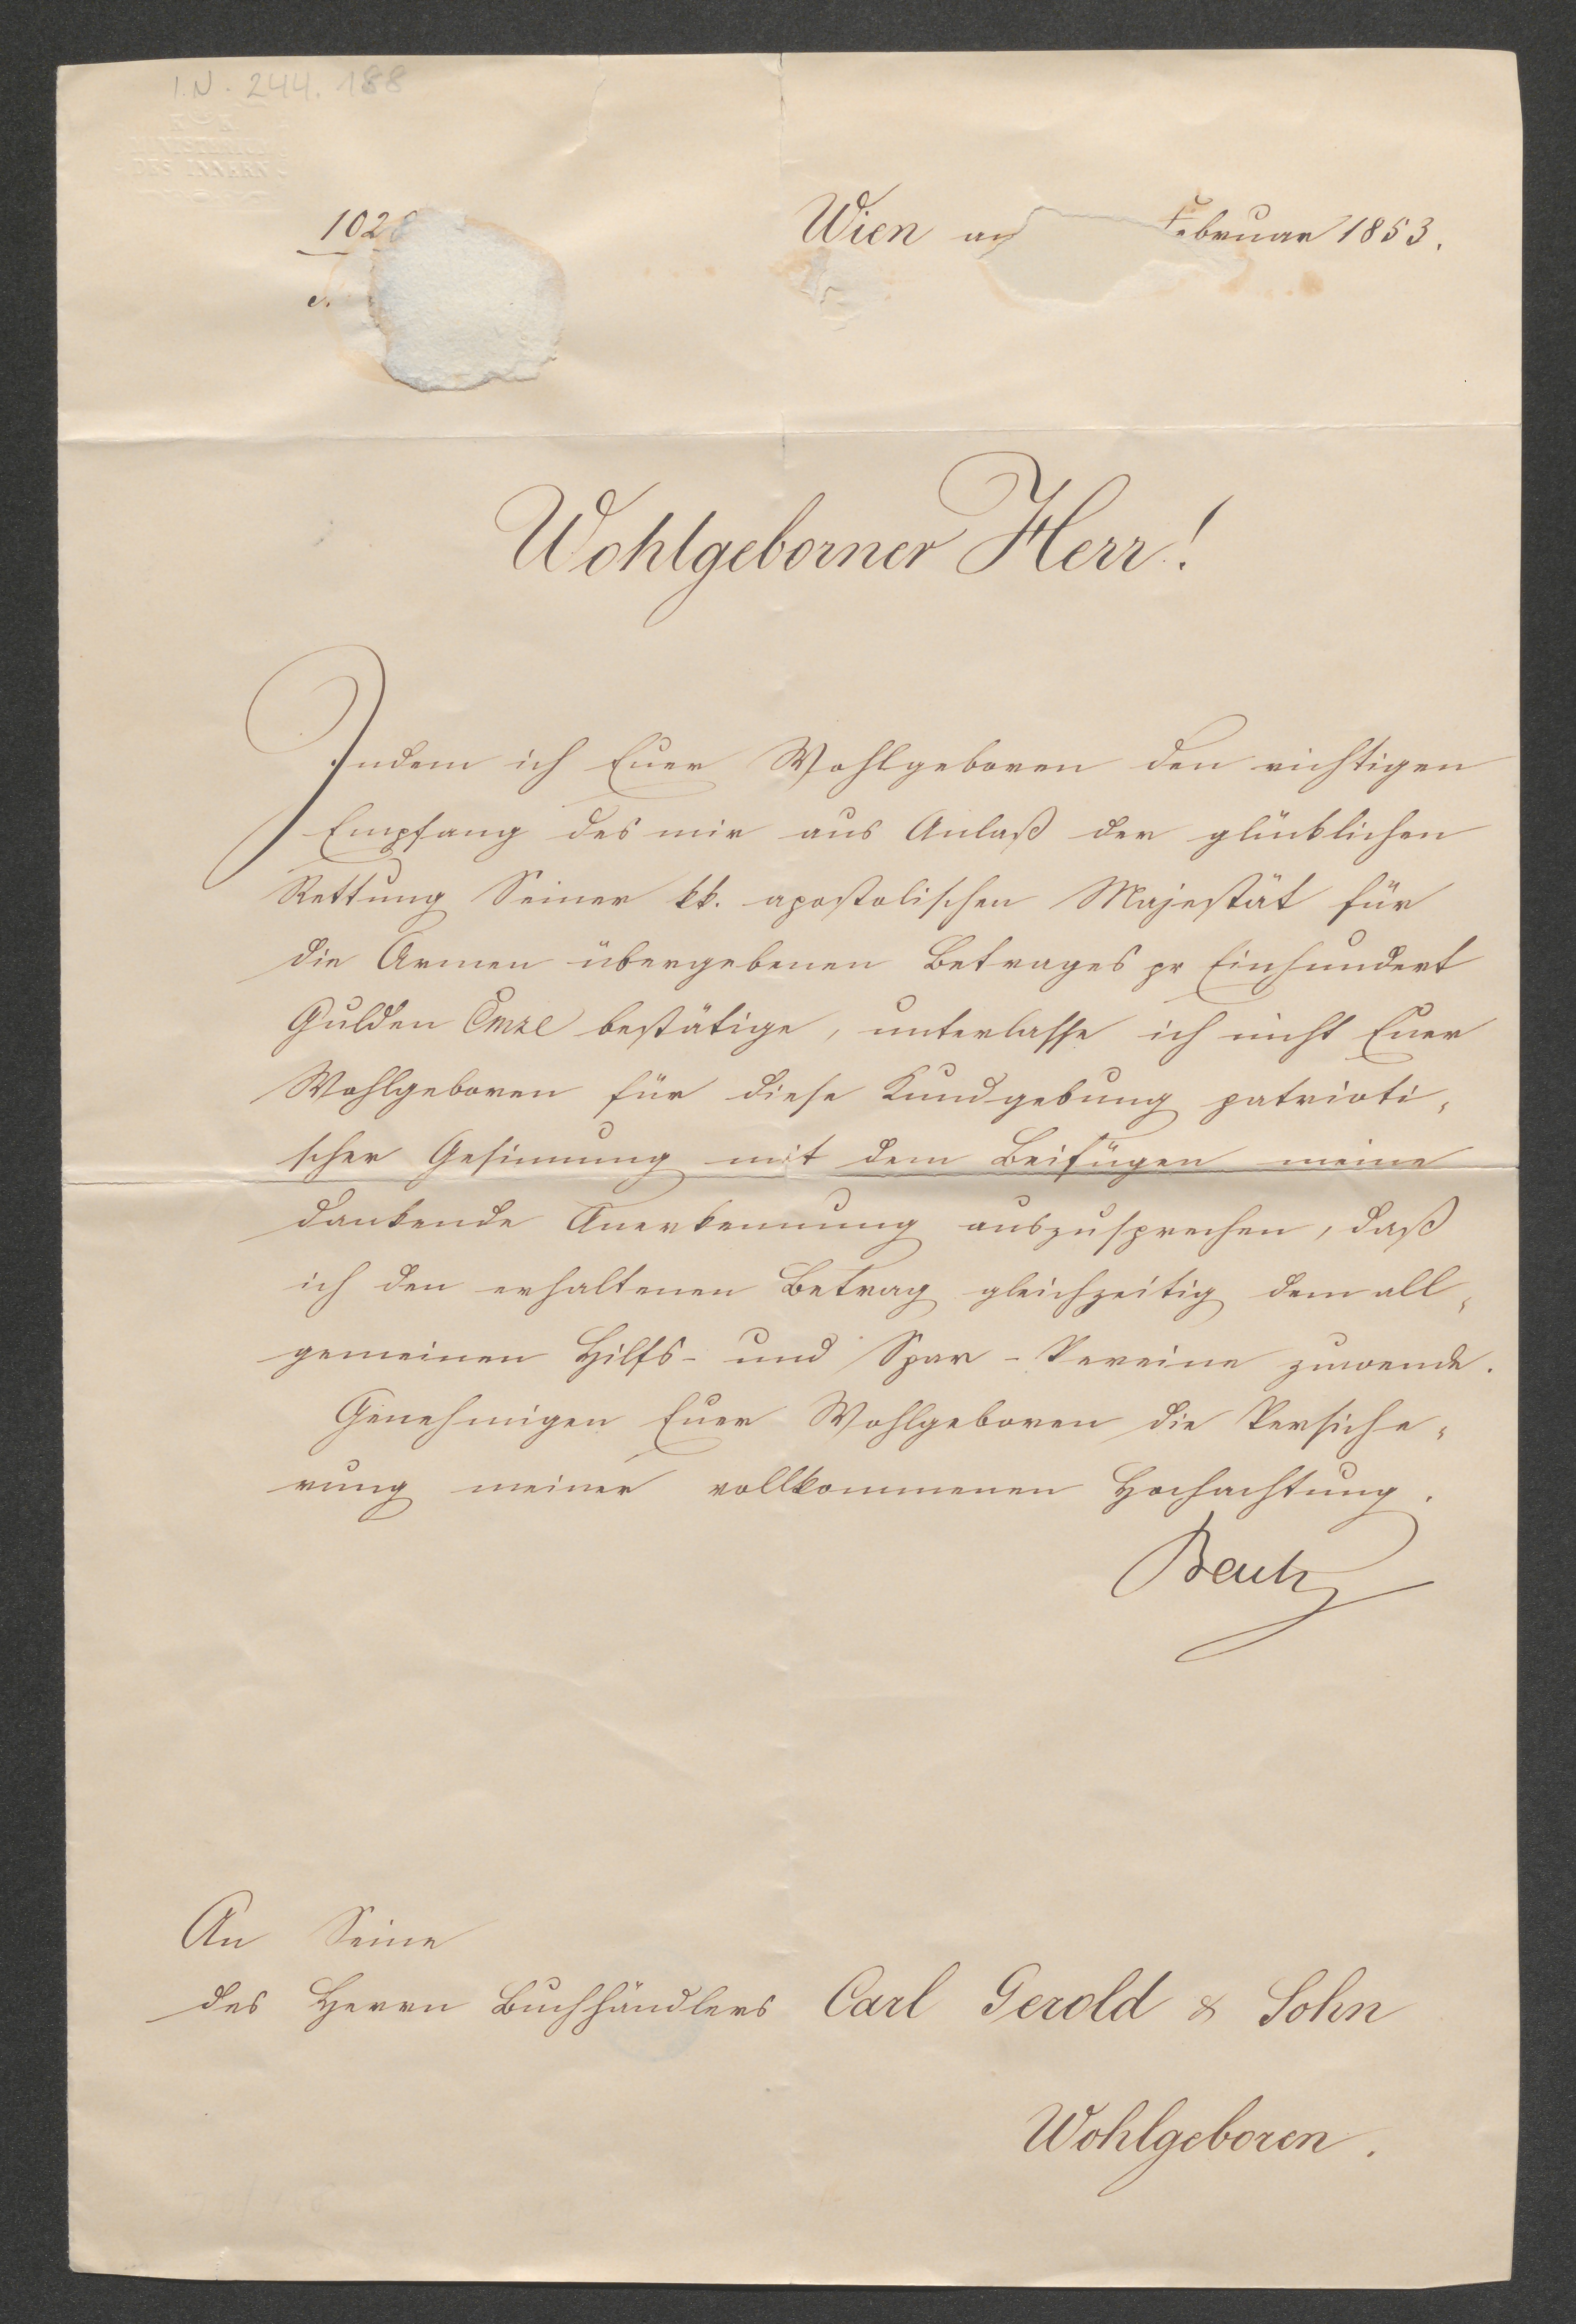 I.N. 244.188
K K
MINISTERIUM
DES INNERN
102
Wien am Februar 1853.
Wohlgeborner Herr!
Indem ich Euer Wohlgeboren den richtigen
Empfang des mir aus Anlaß der glücklichen
Rettung Seiner kk. apostolischen Majestät für
die Armen übergebenen Betrages pr Einhundert
Gulden Cmze bestätige, unterlasse ich nicht Euer
Wohlgeboren für diese Kundgebung patrioti„
scher Gesinnung mit dem Beifügen meine
dankende Anerkennung auszusprechen, daß
ich den erhaltenen Betrag gleichzeitig dem all„
gemeinen Hilfs- und Spar-Vereine zuwende.
Genehmigen Euer Wohlgeboren die Versiche„
rung meiner vollkommenen Hochachtung.
Bach
An Seine
des Herrn Buchhändlers Carl Gerold & Sohn
Wohlgeboren.